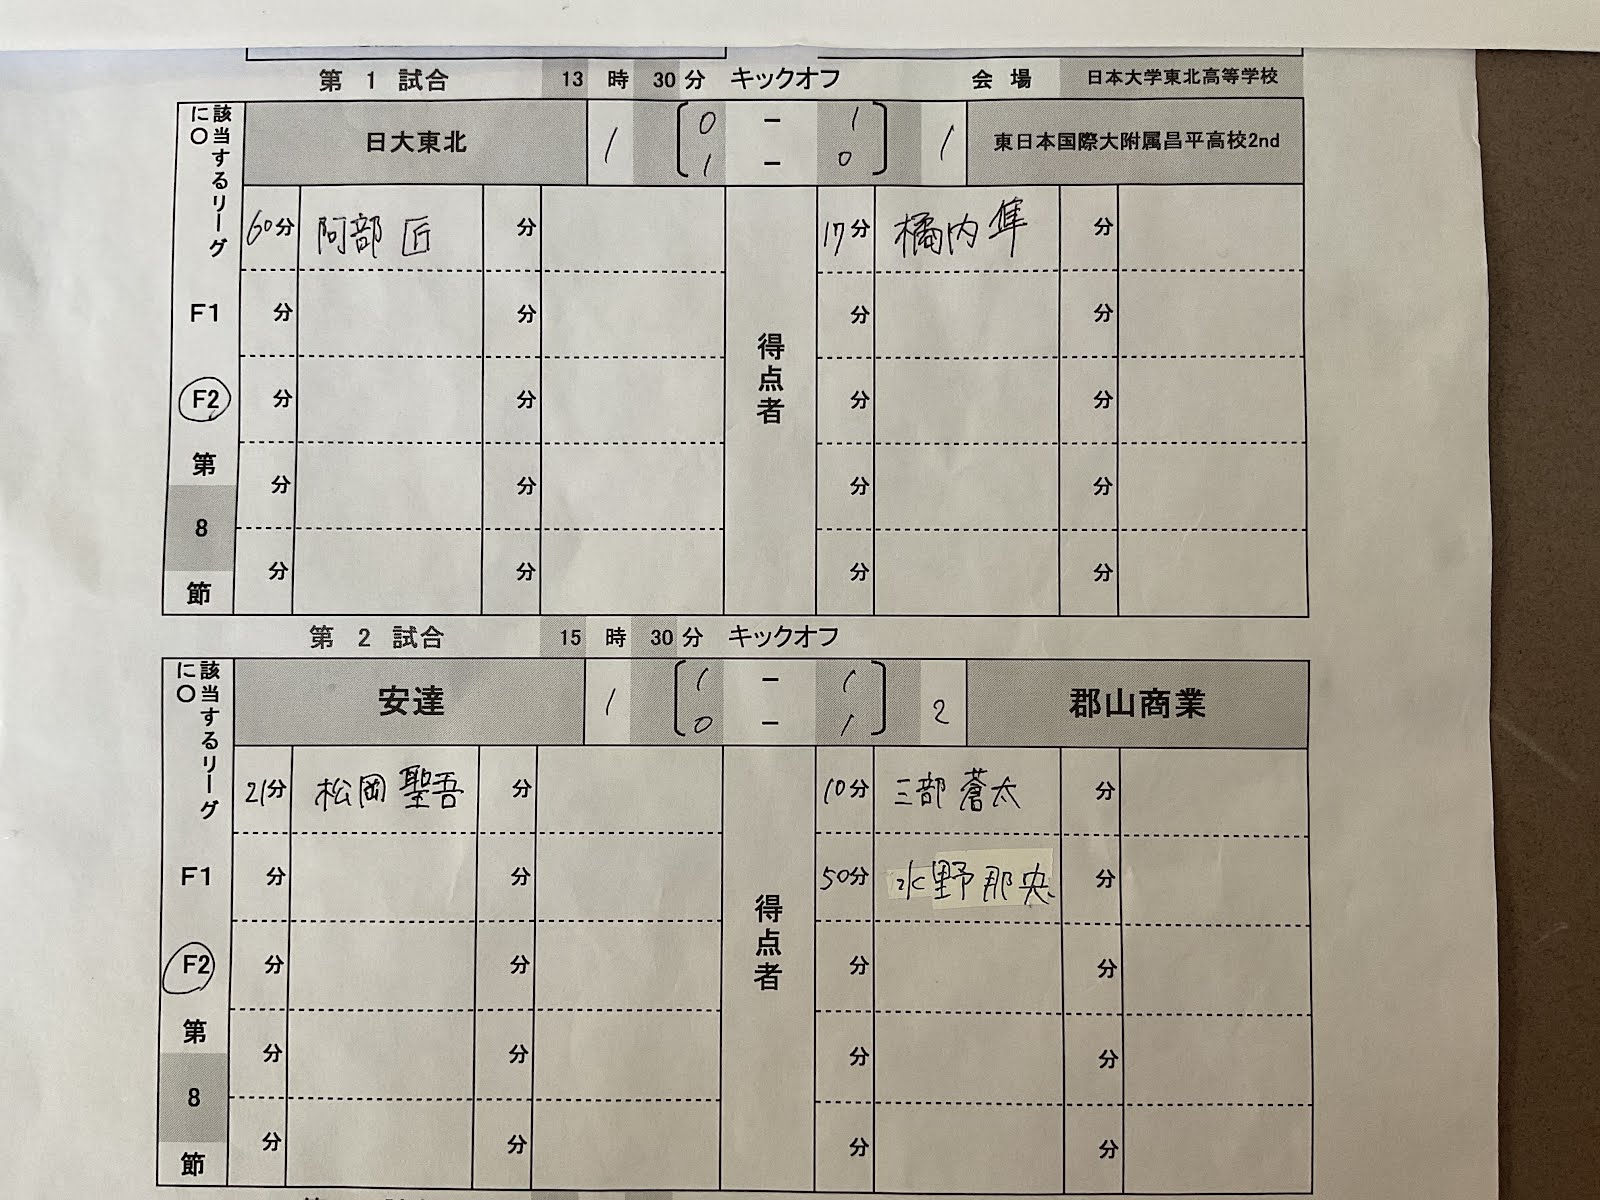 第 1 試合 13 時 30 分 キックオフ 会 場 日本大学東北高等学校
該当するリーグに○
日大東北 1 0 - 1 1 東日本国際大附属昌平高校2nd
1 - 0
60分 阿部 匠 分 得点者 17分 橘内 隼 分
F1 分 分 分 分
F2 分 分 分 分
第 分 分 分 分
8
節 分 分 分 分
第 2 試合 15 時 30 分 キックオフ
該当するリーグに○
安達 1 1 - 1 2 郡山商業
0 - 1
21分 松岡 聖吾 分 得点者 10分 三部 蒼太 分
F1 分 分 50分 水野 那央 分
F2 分 分 分 分
第 分 分 分 分
8
節 分 分 分 分